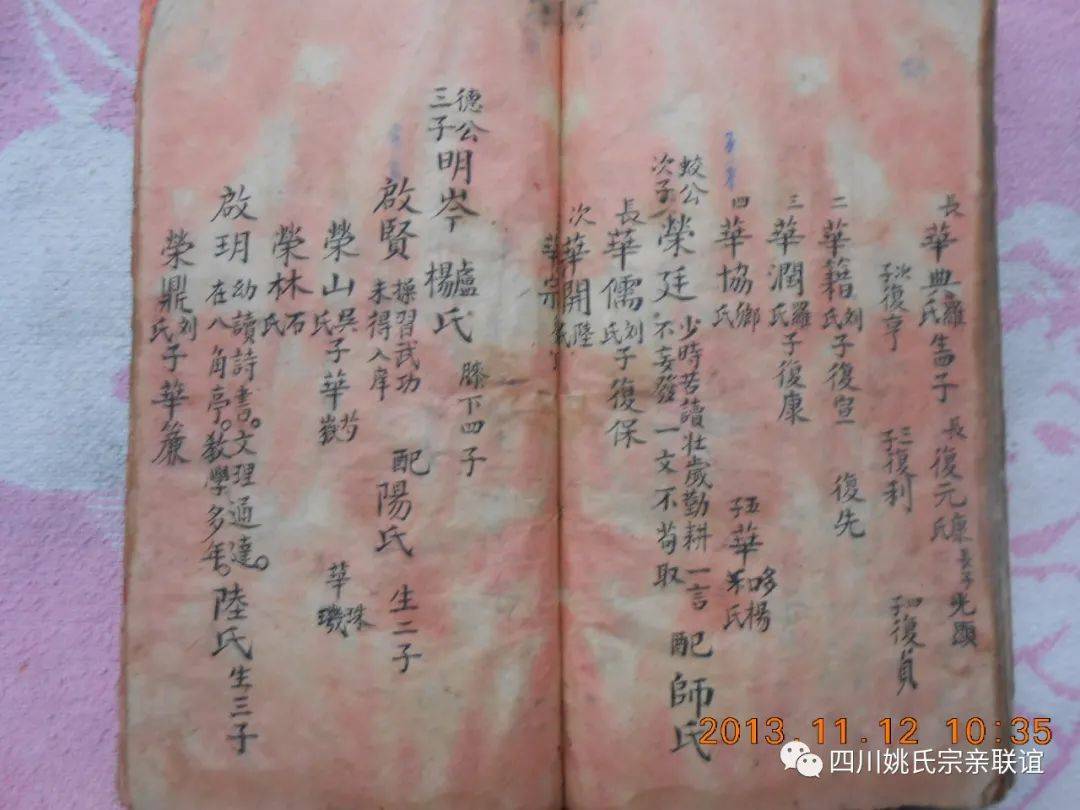 長 華典羅氏 生子 長復元康氏 長子光顯
次子復亨 三子復利 四子復貞
二 華籍刘氏 子復宣 復先
三 華潤羅氏 子復康
四 華協鄉氏 五子華和楊氏
蛟公次子 榮廷 少時苦讀壯歲勤耕一言不妄發一文不苟取 配師氏
長 華儒刘氏 子復保
次 華開陸氏
華宗
德公三子 明岑 盧氏楊氏 膝下四子
啟賢 操習武功未得入庠 配陽氏 生二子
榮山吳氏 子華 華珠璣
榮林石氏
啟玥 幼讀詩書。文理通達。在八角亭。教學多年。陸氏 生三子
榮鼎刘氏 子華簾
2013.11.12 10:35
四川姚氏宗亲联谊